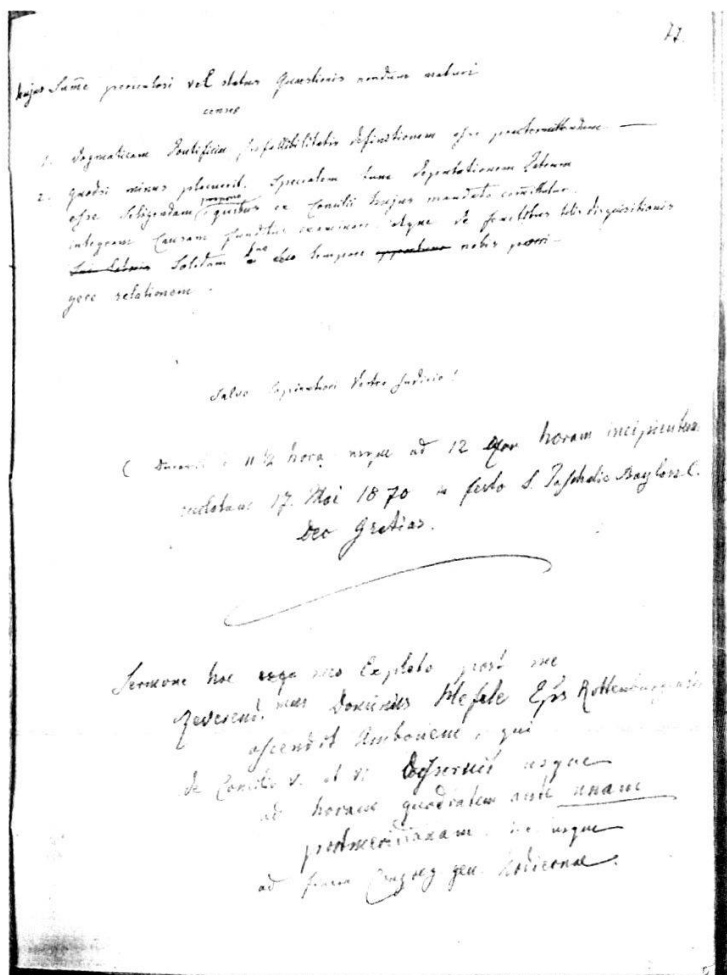 77.
hujus Summe vel status Questionis nondum maturi
censeo
1. Dogmaticam Pontificiae Infallibilitatis definitionem esse praetermittendam. —
2. Quodsi minus placuerit. Specialem tunc Deputationem Patrum
esse seligendam quibus ex Concilii hujus mandato committatur
integram Causam funditus examinare, atque de fructibus disquisitionis
solidam tempore nobis
relationem.
Salvo Sapientiori Vestro Judicio!
( 11 1/2 hora usque ad 12 horam incipientem
17. Mai 1870 in festo S. Paschalis Baylon C.
Deo Gratias.
Sermone hoc meo Expleto post me
Reverend.mus Dominus Hefele Eps Rottenburgensis
ascendit Ambonem, qui
de Concilio V. et VI. Disseruit usque
ad horam quadrantem ante unam
postmeridianam usque
ad finem Congreg gen. hodiernae.